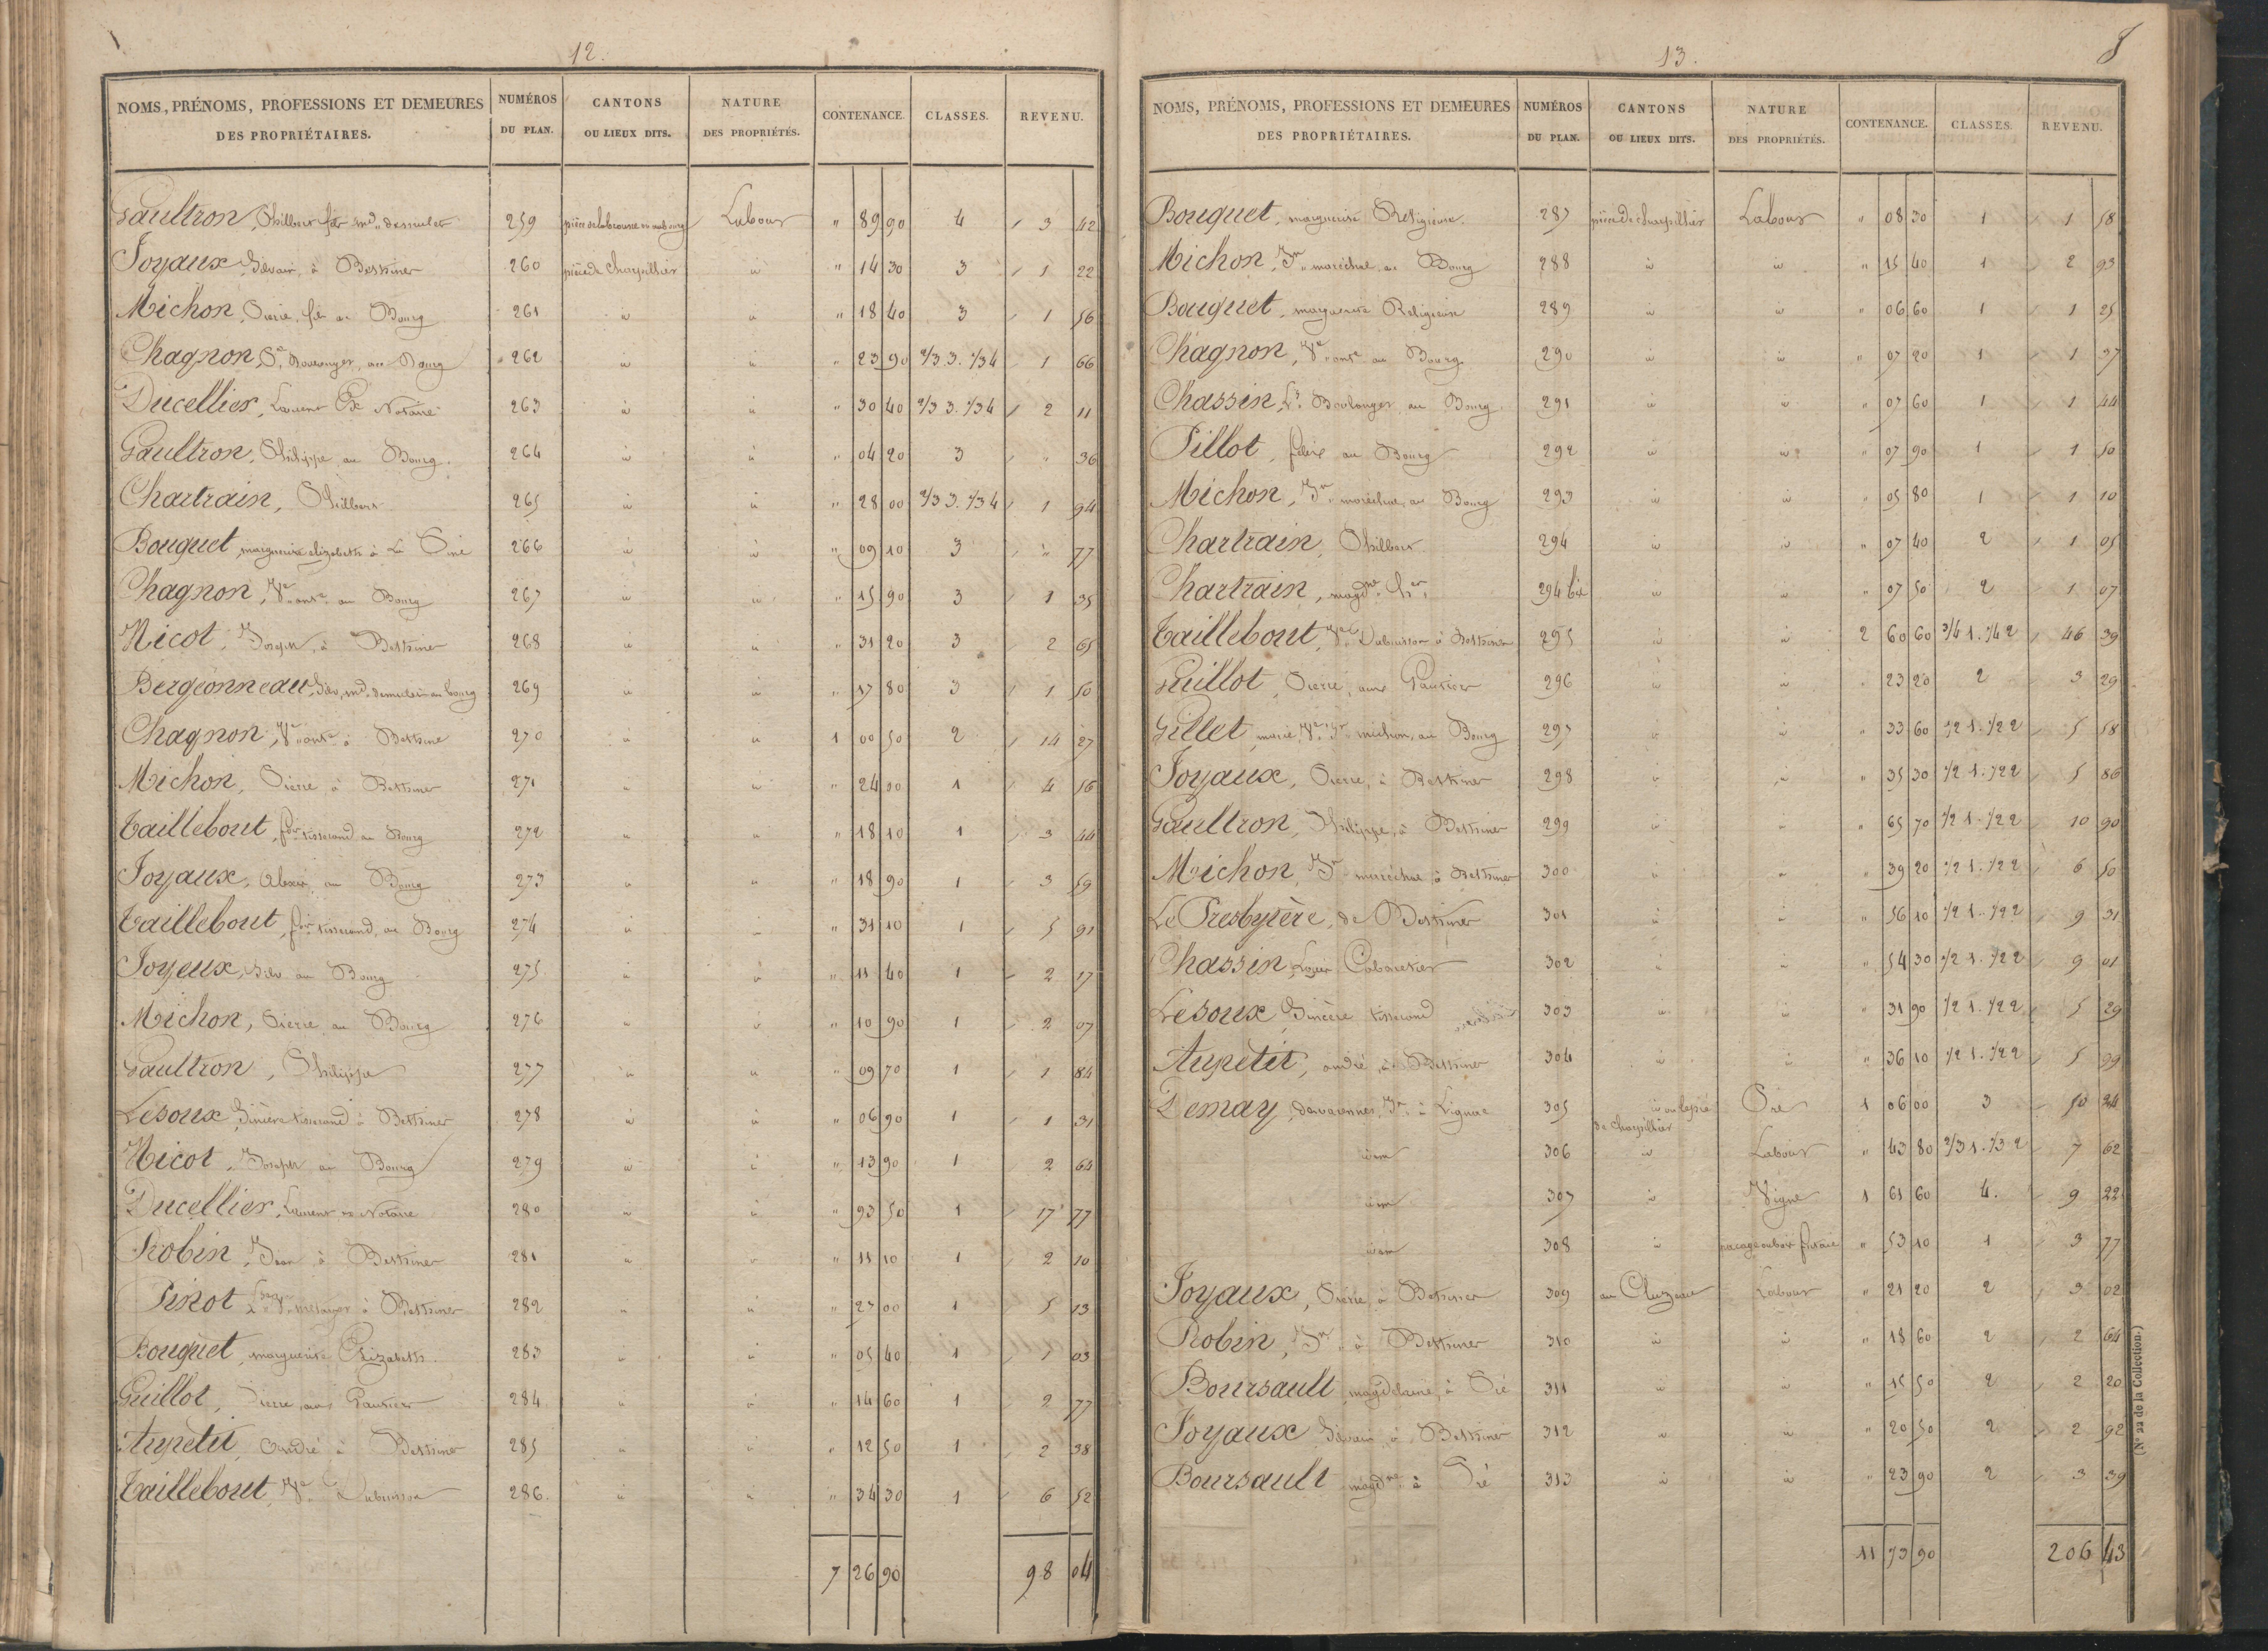 12.
NOMS, PRÉNOMS, PROFESSIONS ET DEMEURES DES PROPRIÉTAIRES. NUMÉROS DU PLAN. CANTONS OU LIEUX DITS. NATURE DES PROPRIÉTÉS. CONTENANCE. CLASSES. REVENU.
Gaultron, 259 Labour " 89 90 4 3 42
Joyaux, Silvain, à 260 pièce de Charpillier id " 14 30 3 1 22
Michon, Pierre, fils au Bourg 261 id id " 18 40 3 1 56
Chagnon, Boulanger, au Bourg 262 id id " 23 90 2/3 3. 1/3 4 1 66
Ducellier, Laurent Ex Notaire 263 id id " 30 40 2/3 3. 1/3 4 2 11
Gaultron, Philippe, au Bourg. 264 id id " 04 20 3 " 36
Chartrain, Philbert 265 id id " 28 00 2/3 3. 1/3 4 1 94
Bouquet, marguerite elizabeth à 266 id id " 09 10 3 " 77
Chagnon, Ve ante au Bourg 267 id id " 15 90 3 1 35
Nicot, Joseph, à 268 id id " 31 20 3 2 65
Bergeonneau, Silv. au bourg 269 id id " 17 80 3 1 50
Chagnon, Ve ante à 270 id id 1 00 50 2 14 27
Michon, Pierre, à 271 id id " 24 00 1 4 56
Taillebout, tisserand au Bourg 272 id id " 18 10 1 3 44
Joyaux, au Bourg 273 id id " 18 90 1 3 59
Taillebout, tisserand, au Bourg 274 id id " 31 10 1 5 91
Joyeux, Silv. au Bourg 275 id id " 11 40 1 2 17
Michon, Pierre au Bourg 276 id id " 10 90 1 2 07
Gaultron, Philippe 277 id id " 09 70 1 1 84
Lesoux, Sincère tisserand à 278 id id " 06 90 1 1 31
Nicot, Joseph au Bourg 279 id id " 13 90 1 2 64
Ducellier, Laurent ex Notaire 280 id id " 93 50 1 17 77
Robin, Jean à 281 id id " 11 10 1 2 10
Pinot à 282 id id " 27 00 1 5 13
Bouquet, marguerite Elizabeth. 283 id id " 05 40 1 1 03
Guillot, Pierre, aux Gautier 284 id id " 14 60 1 2 77
Aupetit, André à 285 id id " 12 50 1 2 38
Taillebout, Ve Dubuisson 286. id id " 34 30 1 6 52
7 26 90 98 04
13.
8
NOMS, PRÉNOMS, PROFESSIONS ET DEMEURES DES PROPRIÉTAIRES. NUMÉROS DU PLAN. CANTONS OU LIEUX DITS. NATURE DES PROPRIÉTÉS. CONTENANCE. CLASSES. REVENU.
Bouquet, marguerite Religieuse. 287 pièce de Charpillier Labour " 08 30 1 1 58
Michon, Jn maréchal, au Bourg 288 id id " 15 40 1 2 93
Bouquet, marguerite Religieuse 289 id id " 06 60 1 1 25
Chagnon, Ve ante au Bourg. 290 id id " 07 20 1 1 37
Chassin, Ls Boulanger, au Bourg 291 id id " 07 60 1 1 44
Pillot, felix au Bourg 292 id id " 07 90 1 1 50
Michon, Jn maréchal, au Bourg 293 id id " 05 80 1 1 10
Chartrain, Philbert 294 id id " 07 40 2 1 05
Chartrain, magdne 294 bis id id " 07 50 2 1 07
Taillebout, Ve Dubuisson à 295 id id 2 60 60 3/4 1. 1/4 2 46 39
Guillot, Pierre, aux Gautier 296 id id " 23 20 2 3 29
Gillet, marie Ve Jn michon, au Bourg 297 id id " 33 60 1/2 1. 1/2 2 5 58
Joyaux, Pierre, à 298 id id " 35 30 1/2 1. 1/2 2 5 86
Gaultron, Philippe, à 299 id id " 65 70 1/2 1. 1/2 2 10 90
Michon, Jn maréchal à 300 id id " 39 20 1/2 1. 1/2 2 6 50
Le Presbytère, de 301 id id " 56 10 1/2 1. 1/2 2 9 31
Chassin, Louis Cabaretier 302 id id " 54 30 1/2 1. 1/2 2 9 01
Lesoux, Sincère tisserand 303 id id " 31 90 1/2 1. 1/2 2 5 29
Aupetit, andré, à 304 id id " 36 10 1/2 1. 1/2 2 5 99
Demay, Jn à Lignac 305 id ou le pré de Charpillier Pré 1 06 00 3 50 24
idem 306 id Labour " 43 80 2/3 1. 1/3 2 7 62
idem 307 id Vigne 1 61 60 4. 9 22
idem 308 id pacage ou bois futaie " 53 10 1 3 77
Joyaux, Pierre, à 309 au Cluzeau Labour " 21 20 2 3 02
Robin, Jn à 310 id id " 18 60 2 2 64
Boursault, magdelaine, à 311 id id " 15 50 2 2 20
Joyaux Silvain, à 312 id id " 20 50 2 2 92
Boursault magdne à 313 id id " 23 90 2 3 39
11 73 90 206 43
(No 2a de la Collection.)